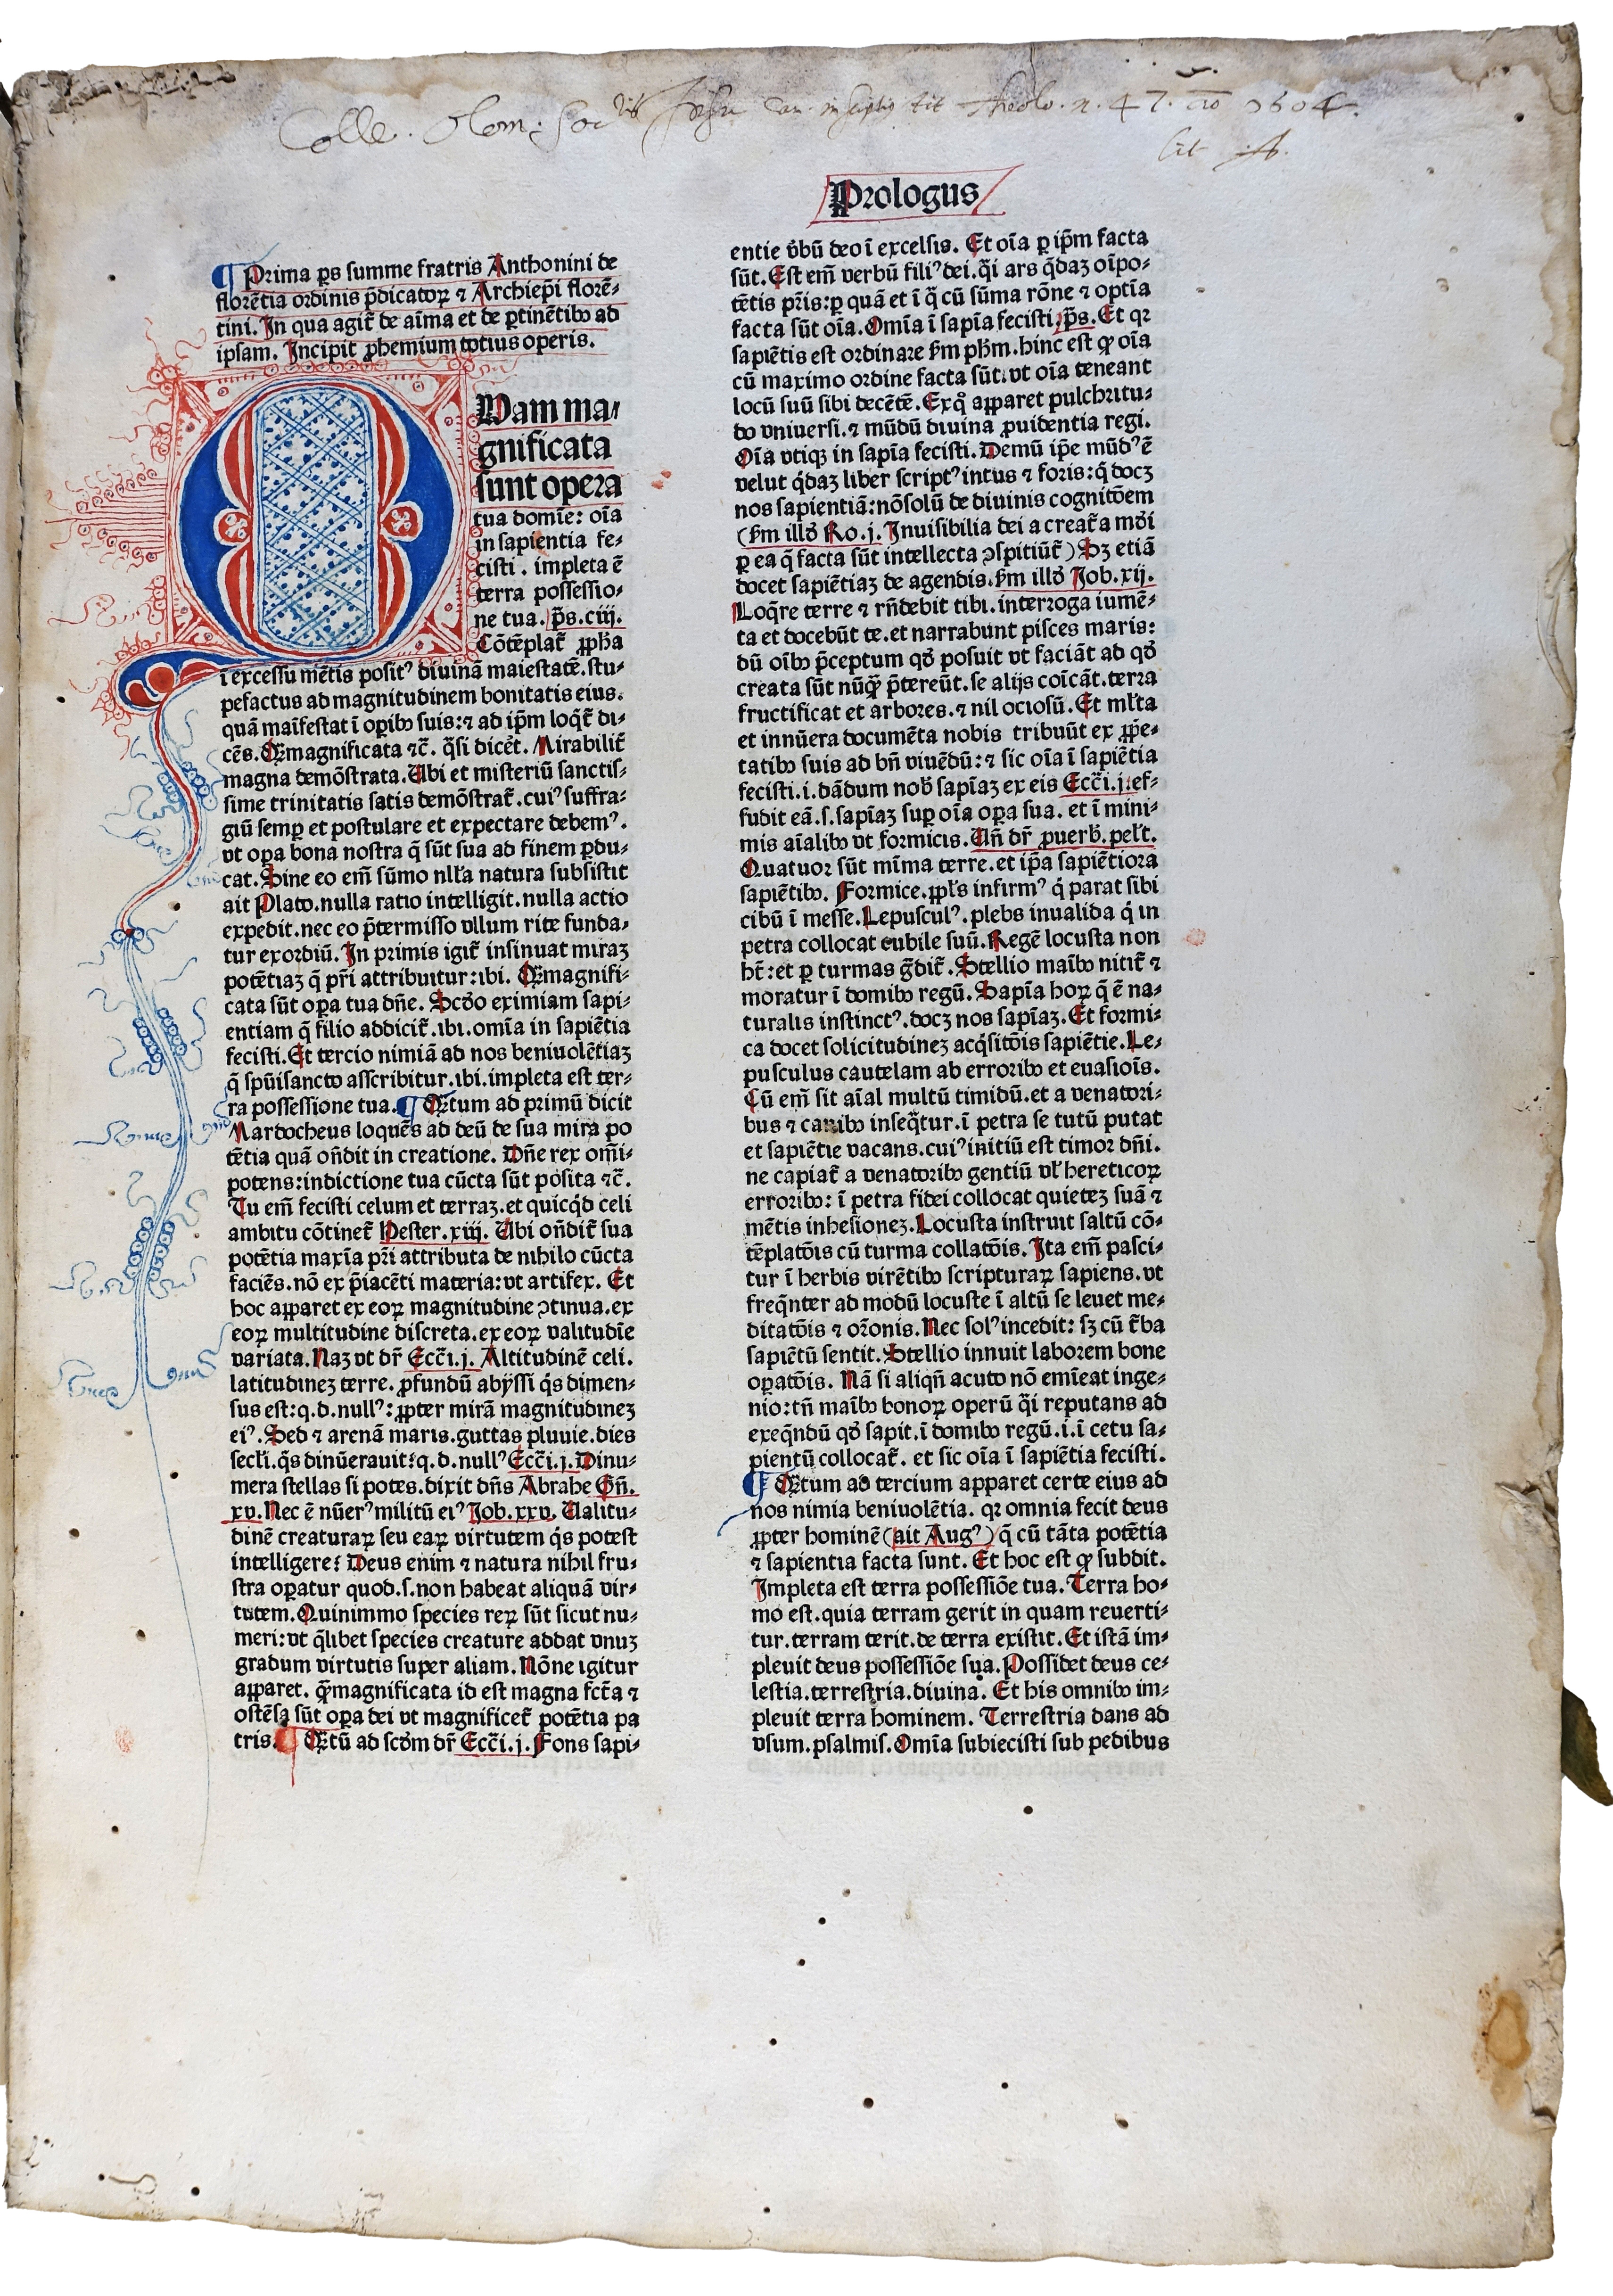 Colle. Olom: Soctis Jesu Cat. inscriptus tit Theolo. n. 47. Ao 1604.
lit A.
Prologus
¶ Prima ꝑs summe fratris Anthonini de
florētia ordinis p̄dicatoꝝ ⁊ Archiep̄i florē⸗
tini. In qua agit̄ de aīma et de ꝑtinētibꝰ ad
ipsam. Incipit ꝓhemium totius operis.
QUam ma⸗
gnificata
sunt opera
tua domīe: oīa
in sapientia fe⸗
cisti. impleta ē
terra possessio⸗
ne tua. p̄s. ciij.
Cōtēplat̄ ꝓph̄a
ī excessu mētis positꝰ diuinā maiestatē. stu⸗
pefactus ad magnitudinem bonitatis eius.
quā maīfestat ī oꝑibꝰ suis: ⁊ ad ip̄m loq̄t̄ di⸗
cēs. Q̄ꝫmagnificata ⁊c̄. q̄si dicēt. Mirabilit̄
magna demōstrata. Ubi et misteriū sanctis⸗
sime trinitatis satis demōstrat̄. cuiꝰ suffra⸗
giū semꝑ et postulare et expectare debemꝰ.
vt oꝑa bona nostra q̄ sūt sua ad finem ꝑdu⸗
cat. Sine eo em̄ sūmo nll̄a natura subsistit
ait Plato. nulla ratio intelligit. nulla actio
expedit. nec eo p̄termisso vllum rite funda⸗
tur exordiū. In primis igit̄ insinuat miraꝫ
potētiaꝫ q̄ pr̄i attribuitur: ibi. Q̄ꝫmagnifi⸗
cata sūt oꝑa tua dn̄e. Scd̄o eximiam sapi⸗
entiam q̄ filio addicit̄. ibi. omīa in sapiētia
fecisti. Et tercio nimiā ad nos beniuolētiaꝫ
q̄ spūisancto asscribitur. ibi. impleta est ter⸗
ra possessione tua. ¶ Q̄ꝫtum ad primū dicit
Mardocheus loquēs ad deū de sua mira po
tētia quā on̄dit in creatione. Dn̄e rex om̄i⸗
potens: indictione tua cūcta sūt posita ⁊c̄.
Tu em̄ fecisti celum et terraꝫ. et quicq̄d celi
ambitu cōtinet̄ Hester. xiij. Ubi on̄dit̄ sua
potētia maxīa pr̄i attributa de nihilo cūcta
faciēs. nō ex p̄iacēti materia: vt artifex. Et
hoc apparet ex eoꝝ magnitudine ꝯtinua. ex
eoꝝ multitudine discreta. ex eoꝝ valitudīe
variata. Naꝫ vt dr̄ Ecc̄i. j. Altitudinē celi.
latitudineꝫ terre. ꝓfundū abyssi q̄s dimen⸗
sus est: q. d. nullꝰ: ꝓpter mirā magnitudineꝫ
eiꝰ. Sed ⁊ arenā maris. guttas pluuie. dies
secl̄i. q̄s dinūerauit: q. d. nullꝰ Ecc̄i. j. Dinu⸗
mera stellas si potes. dixit dn̄s Abrahe Gn̄.
xv. Nec ē nūerꝰ militū eiꝰ Job. xxv. Ualitu⸗
dinē creaturaꝝ seu eaꝝ virtutem q̄s potest
intelligere? Deus enim ⁊ natura nihil fru⸗
stra oꝑatur quod. s. non habeat aliquā vir⸗
tutem. Quinimmo species reꝝ sūt sicut nu⸗
meri: vt q̄libet species creature addat vnuꝫ
gradum virtutis super aliam. Nōne igitur
apparet. q̄ꝫmagnificata id est magna fct̄a ⁊
ostēsa sūt oꝑa dei vt magnificet̄ potētia pa
tris. ¶ Q̄ꝫtū ad scd̄m dr̄ Ecc̄i. j. Fons sapi⸗
entie v̄bū deo ī excelsis. Et oīa ꝑ ip̄m facta
sūt. Est em̄ verbū filiꝰ dei. q̄i ars q̄daꝫ oīpo⸗
tētis pr̄is: ꝑ quā et ī q̄ cū sūma rōne ⁊ optīa
facta sūt oīa. Omīa ī sapīa fecisti. p̄s. Et qꝛ
sapiētis est ordinare ẜm ph̄m. hinc est ꝙ oīa
cū maximo ordine facta sūt. vt oīa teneant
locū suū sibi decētē. Exq̊ apparet pulchritu⸗
do vniuersi. ⁊ mūdū diuina ꝓuidentia regi.
Oīa vtiqꝫ in sapīa fecisti. Demū ip̄e mūdꝰ ē
velut q̄daꝫ liber scriptꝰ intus ⁊ foris: q̄ docꝫ
nos sapientiā: nōsolū de diuinis cognitōem
(ẜm illd̄ Ro. j. Inuisibilia dei a creat̄a mōi
ꝑ ea q̄ facta sūt intellecta ꝯspitiūt̄) Sꝫ etiā
docet sapiētiaꝫ de agendis. ẜm illd̄ Job. xij.
Loq̄re terre ⁊ rn̄debit tibi. interroga iumē⸗
ta et docebūt te. et narrabunt pisces maris:
dū oībꝰ p̄ceptum qd̄ posuit vt faciāt ad qd̄
creata sūt nūq̄ꝫ p̄tereūt. se alijs coīcāt. terra
fructificat et arbores. ⁊ nil ociosū. Et ml̄ta
et innūera documēta nobis tribuūt ex ꝓpe⸗
tatibꝰ suis ad bn̄ viuēdū: ⁊ sic oīa ī sapiētia
fecisti. i. dādum nob̄ sapīaꝫ ex eis Ecc̄i. j. ef⸗
fudit eā. s. sapīaꝫ suꝑ oīa oꝑa sua. et ī mini⸗
mis aīalibꝰ vt formicis. Un̄ dr̄ ꝓuerb̄. pel̄t.
Quatuor sūt mīma terre. et ip̄a sapiētiora
sapiētibꝰ. Formice. ppl̄s infirmꝰ q̄ parat sibi
cibū ī messe. Lepusculꝰ. plebs inualida q̄ in
petra collocat cubile suū. Regē locusta non
ht̄: et ꝑ turmas ḡdit̄. Stellio maībꝰ nitit̄ ⁊
moratur ī domibꝰ regū. Sapīa hoꝝ q̄ ē na⸗
turalis instinctꝰ. docꝫ nos sapīaꝫ. Et formi⸗
ca docet solicitudineꝫ acq̄sitōis sapiētie. Le⸗
pusculus cautelam ab erroribꝰ et euasioīs.
Cū em̄ sit aīal multū timidū. et a venatori⸗
bus ⁊ canibꝰ inseq̄tur. ī petra se tutū putat
et sapiētie vacans. cuiꝰ initiū est timor dn̄i.
ne capiat̄ a venatoribꝰ gentiū vl̄ hereticoꝝ
erroribꝰ: ī petra fidei collocat quieteꝫ suā ⁊
mētis inhesioneꝫ. Locusta instruit saltū cō⸗
tēplatōis cū turma collatōis. Ita em̄ pasci⸗
tur ī herbis virētibꝰ scripturaꝝ sapiens. vt
freq̄nter ad modū locuste ī altū se leuet me⸗
ditatōis ⁊ or̄onis. Nec solꝰ incedit: sꝫ cū t̄ba
sapiētū sentit. Stellio innuit laborem bone
oꝑatōis. Nā si aliqn̄ acuto nō emīeat inge⸗
nio: tn̄ maībꝰ bonoꝝ operū q̄i reputans ad
exeq̄ndū qd̄ sapit. ī domibꝰ regū. i. ī cetu sa⸗
pientū collocat̄. et sic oīa ī sapiētia fecisti.
¶ Q̄ꝫtum ad tercium apparet certe eius ad
nos nimia beniuolētia. qꝛ omnia fecit deus
ꝓpter hominē (ait Augꝰ) q̄ cū tāta potētia
⁊ sapientia facta sunt. Et hoc est ꝙ subdit.
Impleta est terra possessiōe tua. Terra ho⸗
mo est. quia terram gerit in quam reuerti⸗
tur. terram terit. de terra existit. Et istā im⸗
pleuit deus possessiōe sua. Possidet deus ce⸗
lestia. terrestria. diuina. Et his omnibꝰ im⸗
pleuit terra hominem. Terrestria dans ad
vsum. psalmis. Omīa subiecisti sub pedibus